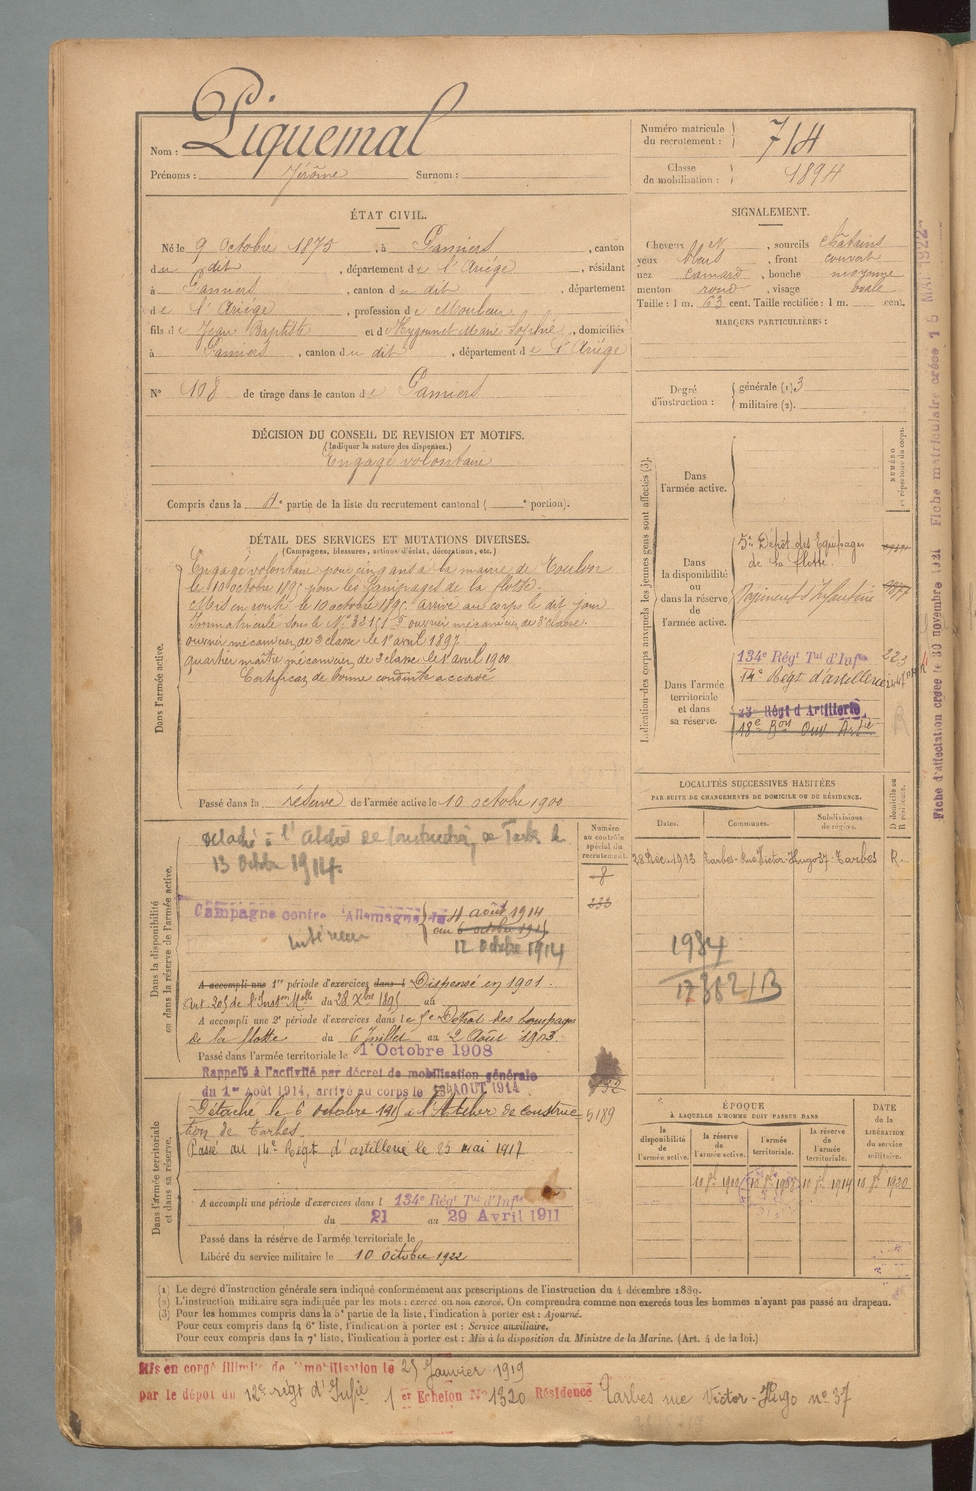 Nom : Piquemal
Prénoms : Jérôme Surnom :
Numéro matricule du recrutement : 714
Classe de mobilisation : 1894
ÉTAT CIVIL.
Né le 9 Octobre 1875, à Pamiers, canton
du dit, département de l'Ariège, résidant
à Pamiers, canton du dit, département
de l'Ariège, profession de Mouleur
fils de Jean Baptiste et d Marie Sophie, domiciliés
à Pamiers, canton du dit, département de l'Ariège
N° 108 de tirage dans le canton de Pamiers
SIGNALEMENT.
Cheveux , sourcils châtains
yeux bleus, front couvert
nez camard, bouche moyenne
menton rond, visage ovale
Taille : 1 m. 63 cent. Taille rectifiée : 1 m. cent.
MARQUES PARTICULIÈRES :
Degré d'instruction : générale (1) 3
militaire (2).
DÉCISION DU CONSEIL DE REVISION ET MOTIFS.
(Indiquer la nature des dispenses.)
Engagé volontaire
Compris dans la e partie de la liste du recrutement cantonal ( e portion).
DÉTAIL DES SERVICES ET MUTATIONS DIVERSES.
(Campagnes, blessures, actions d'éclat, décorations, etc.)
Dans l'armée active.
Engagé volontaire pour cinq ans à la mairie de Toulon
le 10 octobre 1895 pour les Equipages de la flotte.
Mis en route le 10 octobre 1895 arrivé au corps le dit jour
Immatriculé sous le N° ouvrier mécanicien de 3e classe.
ouvrier mécanicien de 2 classe le 1er avril 1897
quartier maître mécanicien de 3 classe le 1er avril 1900
Certificat de bonne conduite accordé
Passé dans la réserve de l'armée active le 10 octobre 1900
Indication des corps auxquels les jeunes gens sont affectés (3).
NUMÉRO au répertoire du corps.
Dans l'armée active.
Dans la disponibilité ou dans la réserve de l'armée active.
5e Dépôt des Equipages
de la flotte
Régiment d'Infanterie
Dans l'armée territoriale et dans sa réserve.
134e Régt Tal d'Infie
14e Régt d'artillerie
23e Régt d'Artillerie
18e Bon Ouv. Artie
LOCALITÉS SUCCESSIVES HABITÉES
PAR SUITE DE CHANGEMENTS DE DOMICILE OU DE RÉSIDENCE.
Dates. Communes. Subdivisions de région. D domicile ou R résidence.
28 Déc. 1913 Tarbes - Rue Victor-Hugo 37 - Tarbes R.
1934
17362/13
Dans la disponibilité ou dans la réserve de l'armée active.
Numéro au contrôle spécial du recrutement.
Détaché à l'Atelier de construction de Tarbes le
13 Octobre 1914.
Campagne contre l'Allemagne du 4 août 1914
au 6 octobre 1915
Intérieur
12 Octobre 1914
A accompli une 1re période d'exercices dans l Dispensé en 1901.
Art 205 de l'Inston Melle du 28 Xbre 1895 au
A accompli une 2e période d'exercices dans le 5e Dépôt des Equipages
de la flotte du 6 Juillet au 2 Août 1903.
Passé dans l'armée territoriale le 1 Octobre 1908
Rappelé à l'activité par décret de mobilisation générale
du 1er Août 1914, arrivé au corps le AOUT 1914
Dans l'armée territoriale et dans sa réserve.
Détaché le 6 octobre 1915 à l'Atelier de construc
tion de Tarbes 5189
Passé au 14e Régt d'artillerie le 25 mai 1917
A accompli une période d'exercices dans l 134e Régt Tal d'Infie
du 21 au 29 Avril 1911
Passé dans la réserve de l'armée territoriale le
Libéré du service militaire le 10 octobre 1922
ÉPOQUE
À LAQUELLE L'HOMME DOIT PASSER DANS
la disponibilité de l'armée active.
la réserve de l'armée active.
l'armée territoriale.
la réserve de l'armée territoriale.
DATE de la LIBÉRATION du service militaire.
(1) Le degré d'instruction générale sera indiqué conformément aux prescriptions de l'instruction du 4 décembre 1889.
(2) L'instruction militaire sera indiquée par les mots : exercé ou non exercé. On comprendra comme non exercés tous les hommes n'ayant pas passé au drapeau.
(3) Pour les hommes compris dans la 5e partie de la liste, l'indication à porter est : Ajourné.
Pour ceux compris dans la 6e liste, l'indication à porter est : Service auxiliaire.
Pour ceux compris dans la 7e liste, l'indication à porter est : Mis à la disposition du Ministre de la Marine. (Art. 4 de la loi.)
Mis en congé illimité de démobilisation le 25 Janvier 1919
par le dépôt du 12e régt d'Infie 1er Echelon N° 1320 Résidence Tarbes rue Victor-Hugo n° 37
Fiche d'affectation créée le 30 novembre 1921 Fiche matriculaire créée 15 MAI 1922